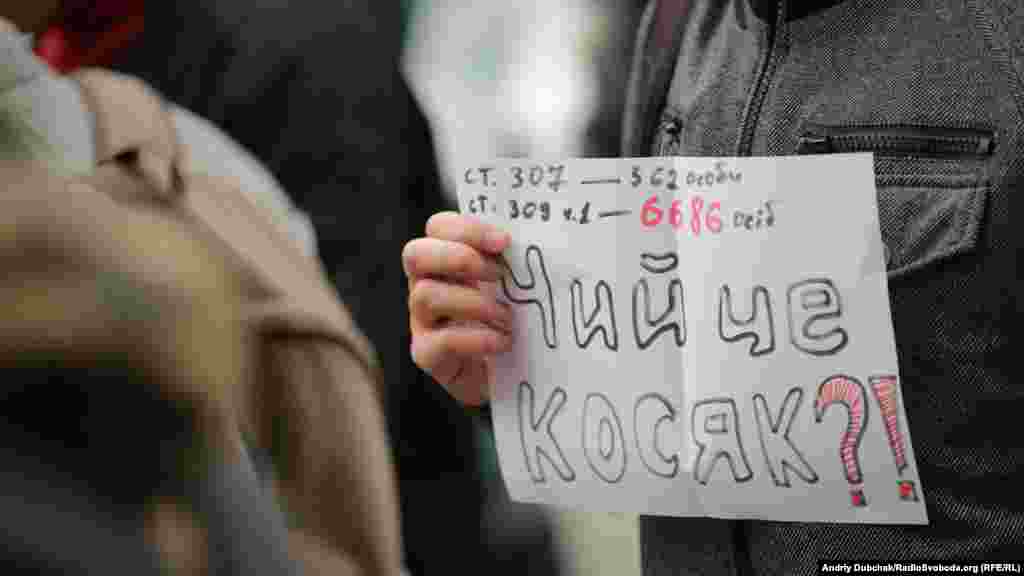 ст. 307 — 362 особи
ст. 309 ч.1 — 6686 осіб
Чий це
косяк?!
Andriy Dubchak/RadioSvoboda.org (RFE/RL)